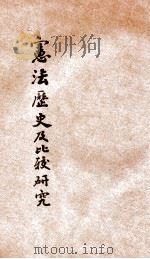 憲法歷史及比較研究
mtoou.info